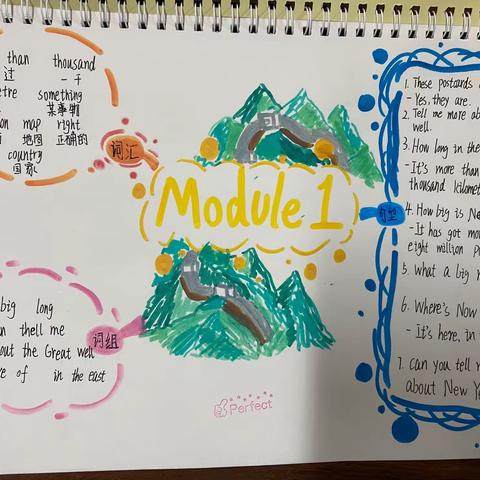 than thousand
过 一千
something
某事物
map right
地图 正确的
country
国家
词汇
Module 1
big long
thell me
the Great well
of in the east
词组
Perfect
句型
1. These postcards
- Yes, they are.
2. Tell me more
well.
3. How long in the
- It's more than
thousand
4. How big is
- It has got
eight million
5. What a big
6. Where's Now
- It's here, in
7. can you tell
about New